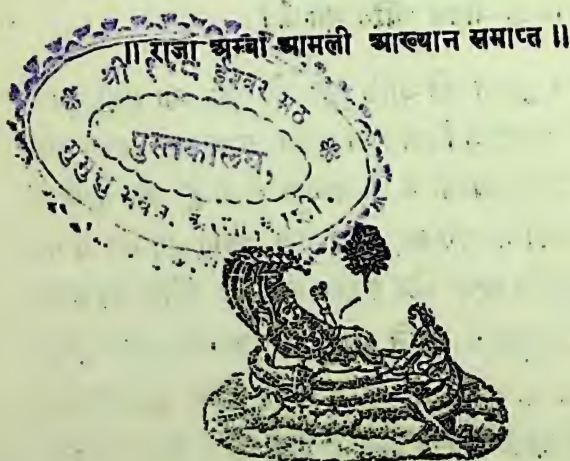 ॥ राजा अम्बा आमली आख्यान समाप्त ॥
श्री ईश्वर मठ
पुस्तकालय,
मुमुक्षु भवन,